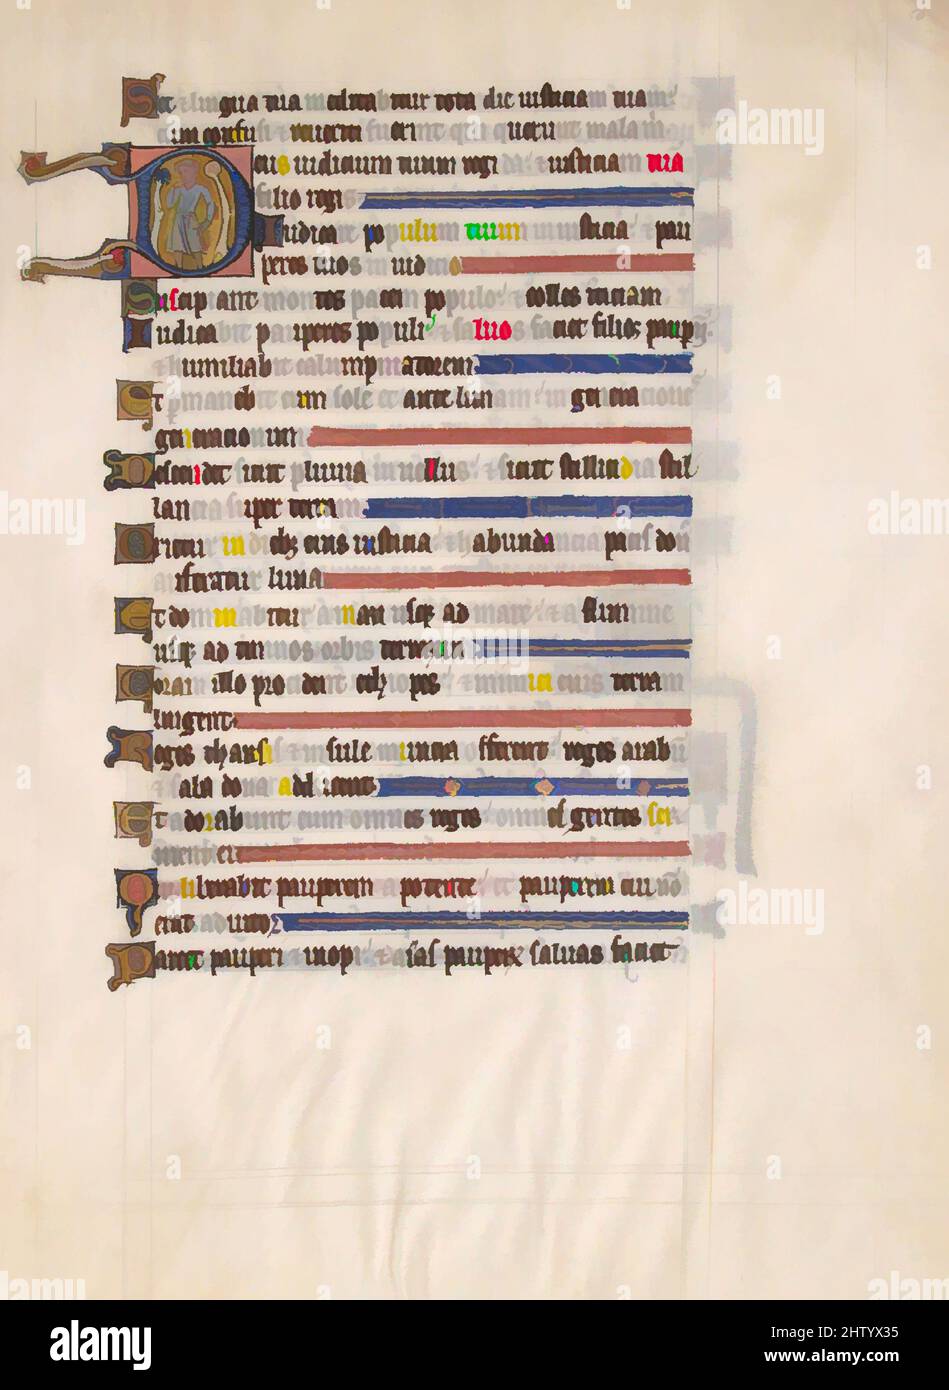 Set & lingua tua meditabitur tota die iusticiam tuam
cum confusi & reueriti fuerint qui querunt mala m̄
Deus iudicium tuum regi da & iusticiam tuam
filio regis
Iudicare populum tuum in iusticia & pau
peres tuos in iudicio
Suscipiant montes pacem populo & colles iusticiam
Iudicabit pauperes populi & saluos faciet filios paupm̄
& humiliabit calumpniatorem
Et pmanebit cum sole et ante lunam in generacione
generacionum
Descendet sicut pluuia in uellus & sicut stillicidia stil
lancia super terram
Orietur in dieb; eius iusticia & habundancia pacis do
auferatur luna
Et dominabitur a mari usq; ad mare & a flumine
usq; ad terminos orbis terrarum
Coram illo procident ethyopes & inimici eius terram
lingent
Reges tharsis & insule munera offerent reges arabū
& saba dona adducent
Et adorabunt eum omnes reges omnes gentes ser
uient ei
Q liberabit pauperem a potente et pauperem cui nō
erat adiutor
Parcet pauperi & inopi & aīas pauperū saluas faciet
alamy
Image ID: 2HTYX35
www.alamy.com